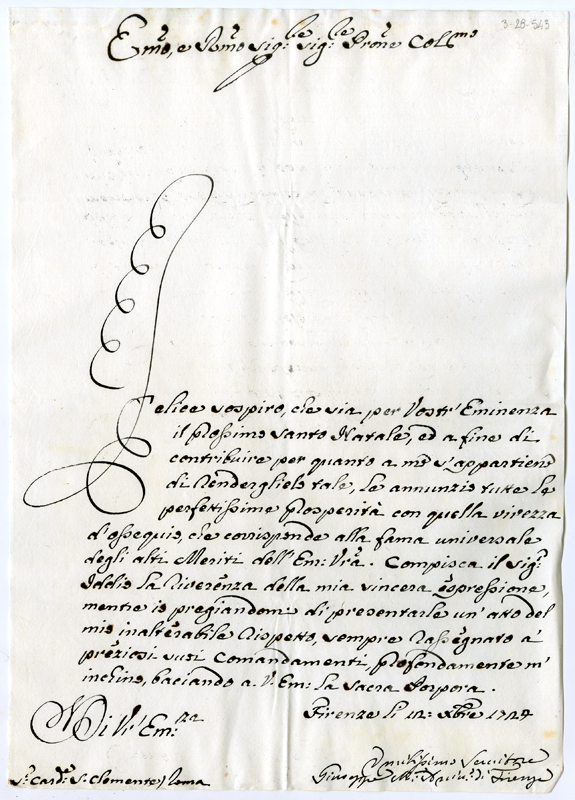 3-28-543
Em̃o, e Rm̃o Sig:re Sig:re Prõne Col̃mo
Felice sospiro, che sia per Vostr'Eminenza
il prossimo Santo Natale, ed a fine di
contribuire per quanto a me s'appartiene
di renderglielo tale, Le annunzio tutte le
perfetissime prosperità con quella vivezza
d'ossequio, che corrisponde alla fama universale
degli alti Meriti dell'Em: Vr̃a. Compisca il Sig:
Iddio la riverenza della mia sincera espressione,
mentre io pregiandomi di presentarle un'atto del
mio inalterabile rispetto, sempre rassegnato a'
preziosi suoi Comandamenti, profondamente m'
inchino, baciando a V. Em: la Sacra Porpora.
Di Vr̃ Em:za
Firenze li 12: Xbre 1724
Umilissimo Servitore
S: Card: S: Clemente) Roma
Giuseppe M: di Firenze